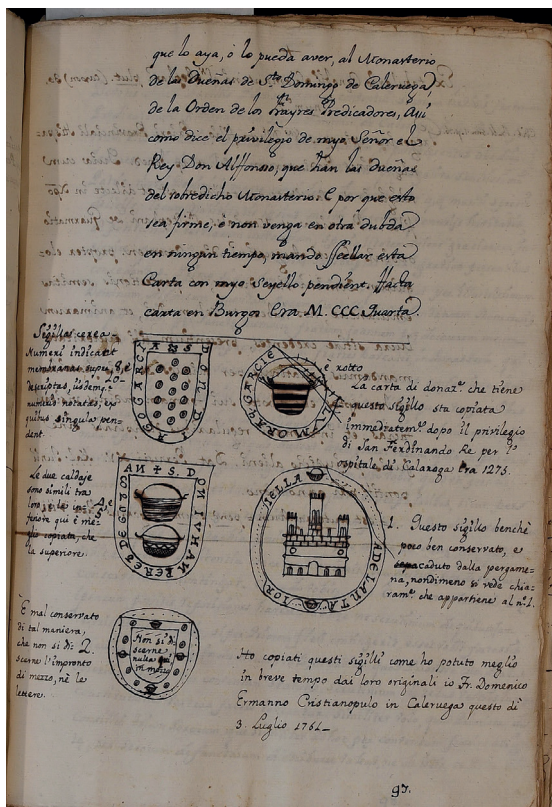 que lo aya, ò lo pueda aver, al Monasterio
de las Dueñas de Sto. Domingo de Caleruega,
de la Orden de los Frayres Predicadores, Asi
como dice el privilegio de mayo Señor el
Rey Don Alffonso, que han las dueñas
del sobredicho Monasterio. E por que esto
sea firme, e non venga en otra dubda
en ningun tiempo, mando sseellar esta
Carta con mayo Seyello pendient. Facta
carta en Burgos Era M. CCC Quarta.
Sigillas cerea.
Numeri indicant
membranas super
descriptas, iisdemq.
numeris notatas, ex
quibus singula pen-
dent.
è rotto
La carta di donazne. che tiene
questo sigillo sta copiata
immediatemte. dopo il privilegio
di San Ferdinando Re per l'o
ospitale di Calaroga Era 1275.
Le due caldaje
sono simili tra
loro; e la in-
feriore qui è me-
glio copiata, che
la superiore.
1. Questo sigillo benchè
poco ben conservato, e
caduto dalla pergame-
na, nondimeno si vede chia-
ramte. che appartiene al no. 1.
ADELANTA
È mal conservato
di tal maniera,
che non si di- 2.
scerne l'impronto
di mezzo, nè le
lettere.
Non si di-
scerne
nulla qui
in mezzo
Ho copiati questi sigilli come ho potuto meglio
in breve tempo dai loro originali io Fr. Domenico
Ermanno Cristianopulo in Caleruega questo dì
3. Luglio 1761_
97.